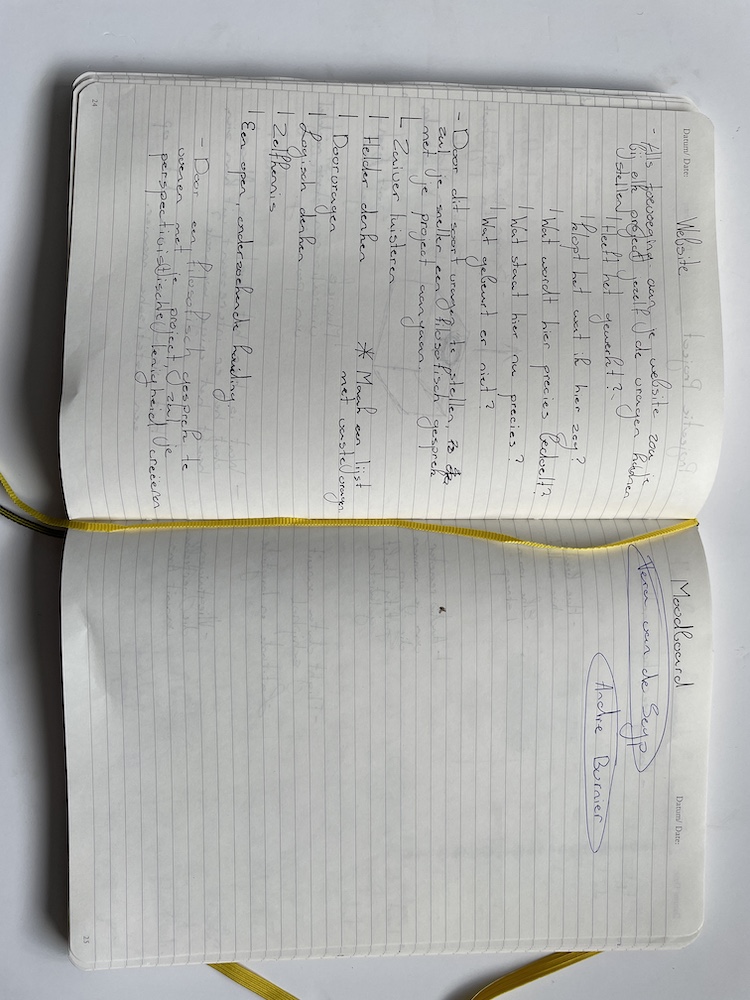 Datum/ Date:
Website
- Als toevoeging aan je website zou je
bij elk project jezelf de vragen kunnen
stellen | Heeft het gewerkt?
| Klopt het wat ik hier zeg?
| Wat wordt hier precies bedoelt?
| Wat staat hier nu precies?
| Wat gebeurt er niet?
- Door dit soort vragen te stellen,
zul je sneller een filosofisch gesprek
met je project aangaan.
L Zuiver luisteren
| Helder denken
* Maak een lijst
met vaste vragen
| Doorvragen
| Logisch denken
| Zelfkennis
| Een open, onderzoekende houding
- Door een filosofisch gesprek te
voeren met je project, zul je
perspectivistische lenigheid creëeren
24
Datum/ Date:
Moodboard
Vera van de Seyp
Andre Burnier
25